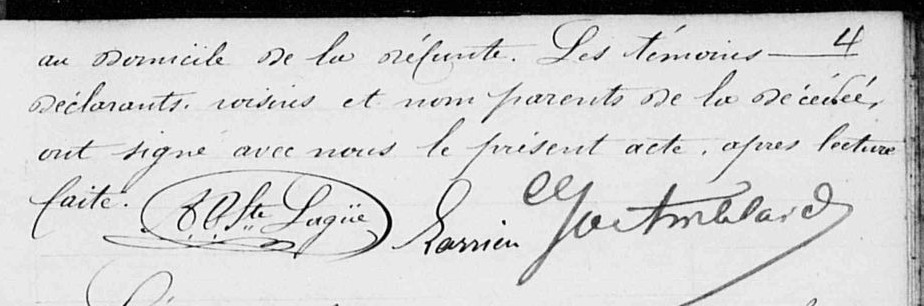 4
au domicile de la défunte. Les témoins
déclarants, voisins et nom parents de la décédée,
ont signé avec nous le présent acte, après lecture
faite.
Ste Lagüe Larrieu